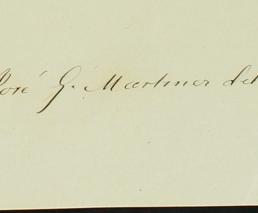 José G. Martinez del